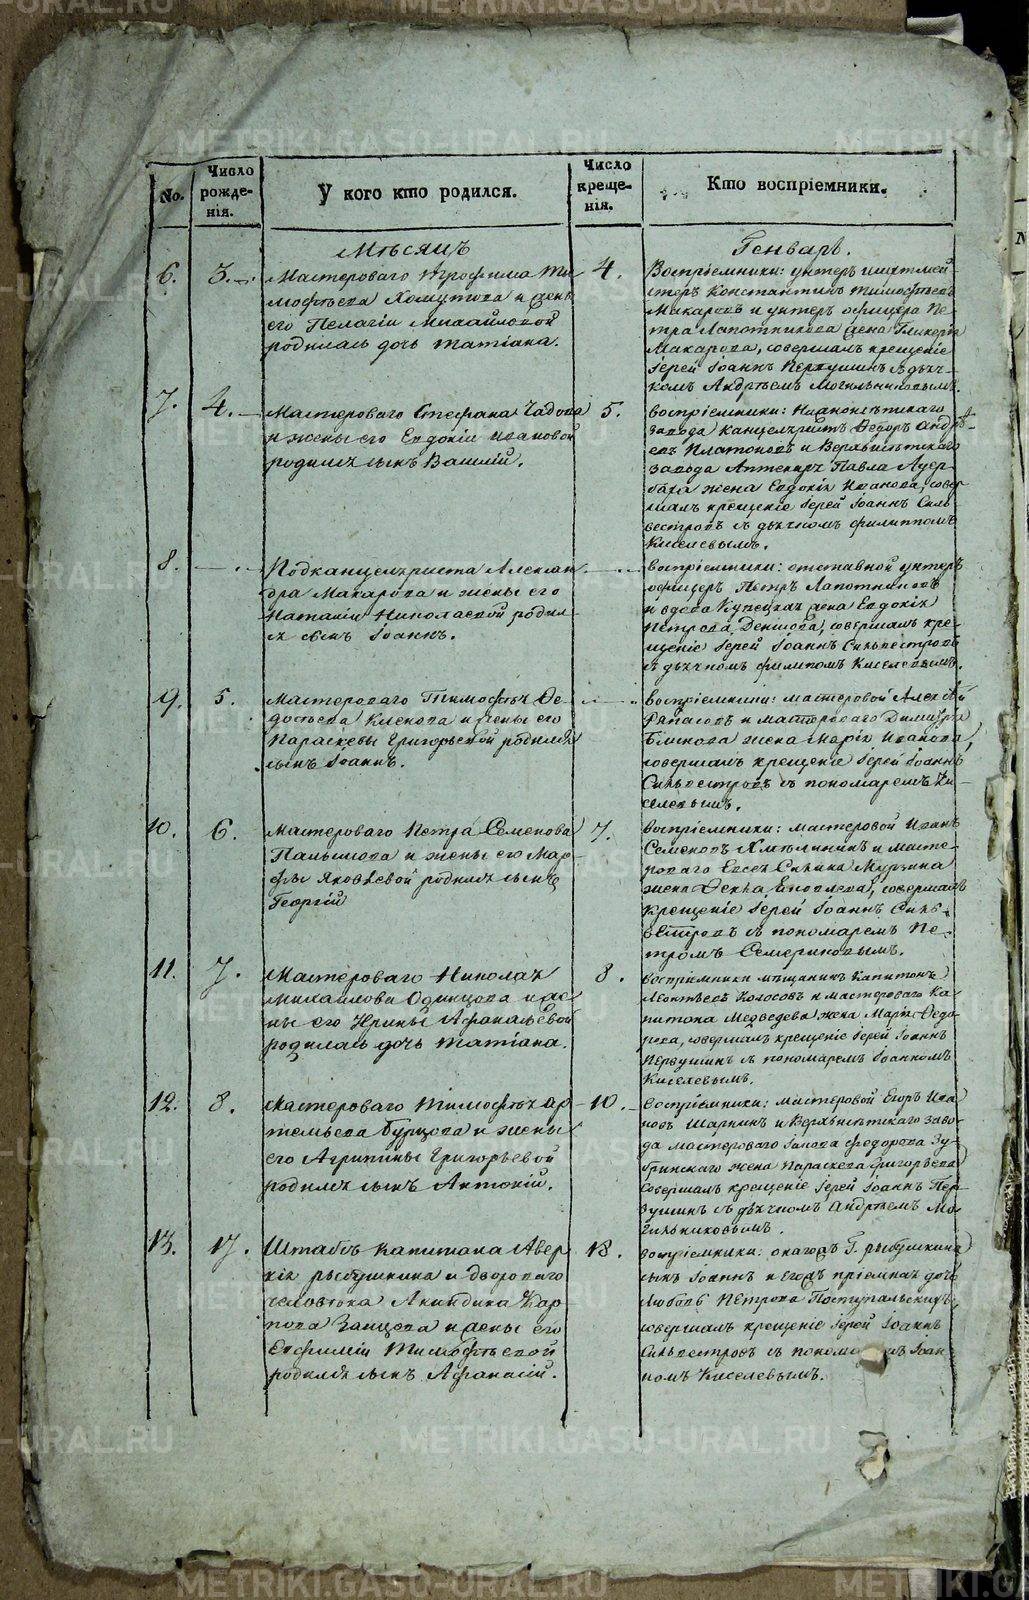 METRIKI.GASO-URAL.RU
No.
Число рожденія.
У кого кто родился.
Число крещенія.
Кто воспріемники.
Мѣсяцъ
Генварь.
6. 3.
Мастероваго Трофима Ти-
мофѣева Хомутова и жены
его Пелагіи Михайловой
родилась дочь Татіана.
4.
Воспріемники: унтеръ шихтмей-
стеръ Константинъ Тимофѣевъ
Макаровъ и унтеръ офицера Пе-
тра Лапотникова жена Гликерія
Макарова, совершалъ крещеніе
Іерей Іоаннъ Первушинъ с дьяч-
комъ Андреемъ Могильниковымъ.
7. 4.
Мастероваго Стефана Чадова
и жены его Евдокіи Ивановой
родился сынъ Василій.
5.
Воспріемники: Нианонсѣтскаго
завода канцеляристъ Федоръ Андрѣ-
евъ Платоновъ и Верхъисѣтскаго
завода Аптекаря Павла Ауер-
баха жена Евдокія Иванова, совер-
шалъ крещеніе Іерей Іоаннъ Силь-
вестровъ съ дьячкомъ Филиппомъ
Киселевымъ.
8.
Подканцеляриста Алексан-
дра Макарова и жены его
Наталіи Николаевой родил-
ся сынъ Іоаннъ.
Воспріемники: отставной унтеръ
офицеръ Петръ Лапотниковъ
и вдова Купецкая жена Евдокія
Петрова Денисова, совершалъ кре-
щеніе Іерей Іоаннъ Сильвестровъ
съ дьячкомъ Филипомъ Киселевымъ.
9. 5.
Мастероваго Тимофея Фе-
досѣева Клекова и жены его
Параскевы Григорьевой родился
сынъ Іоаннъ.
Воспріемники: мастеровой Алексѣй
и мастероваго Димитрія
Блинова жена Марія Иванова,
совершалъ крещеніе Іерей Іоаннъ
Сильвестровъ съ пономаремъ Ки-
селевымъ.
10. 6.
Мастероваго Петра Семенова
Пальшова и жены его Мар-
фы Яковлевой родился сынъ
Георгій
7.
Воспріемники: мастеровой Иванъ
Семеновъ Хмѣлининъ и масте-
роваго Евсея
жена Фекла Яковлева, совершалъ
крещеніе Іерей Іоаннъ Силь-
вестровъ съ пономаремъ Пе-
тромъ Семериковымъ.
11. 7.
Мастероваго Николая
Михайлова Одинцова и же-
ны его Ирины Афанасьевой
родилась дочь Татіана.
8.
Воспріемники мѣщанинъ Капитонъ
Леонтьевъ Колосовъ и мастероваго Ка-
питона Медведева жена Марія Федо-
рова, совершалъ крещеніе Іерей Іоаннъ
Первушинъ съ пономаремъ Іоанномъ
Киселевымъ.
12. 8.
Мастероваго Тимофея Ар-
темьева Бурцова и жены
его Агрипины Григорьевой
родился сынъ Антоній.
10.
Воспріемники: мастеровой Егоръ Ива-
новъ Шаринъ и Верхъисѣтскаго заво-
да мастероваго Іакова Федорова Зу-
бринскаго жена Параскева Григорьева
Совершалъ крещеніе Іерей Іоаннъ Пер-
вушинъ съ дьячкомъ Андреемъ Мо-
гильниковымъ.
13. 17.
Штабсъ Капитана Авер-
кія Рыбушкина и двороваго
человѣка Акиндина Кар-
пова Заицева и жены его
Евфиміи Тимофѣевой
родился сынъ Афанасій.
18.
Воспріемники: онагожъ Г. Рыбушкина
сынъ Іоаннъ и Егожъ пріемная дочь
Любовь Петрова Поступальскихъ,
совершалъ крещеніе Іерей Іоаннъ
Сильвестровъ съ Іоан-
номъ Киселевымъ.